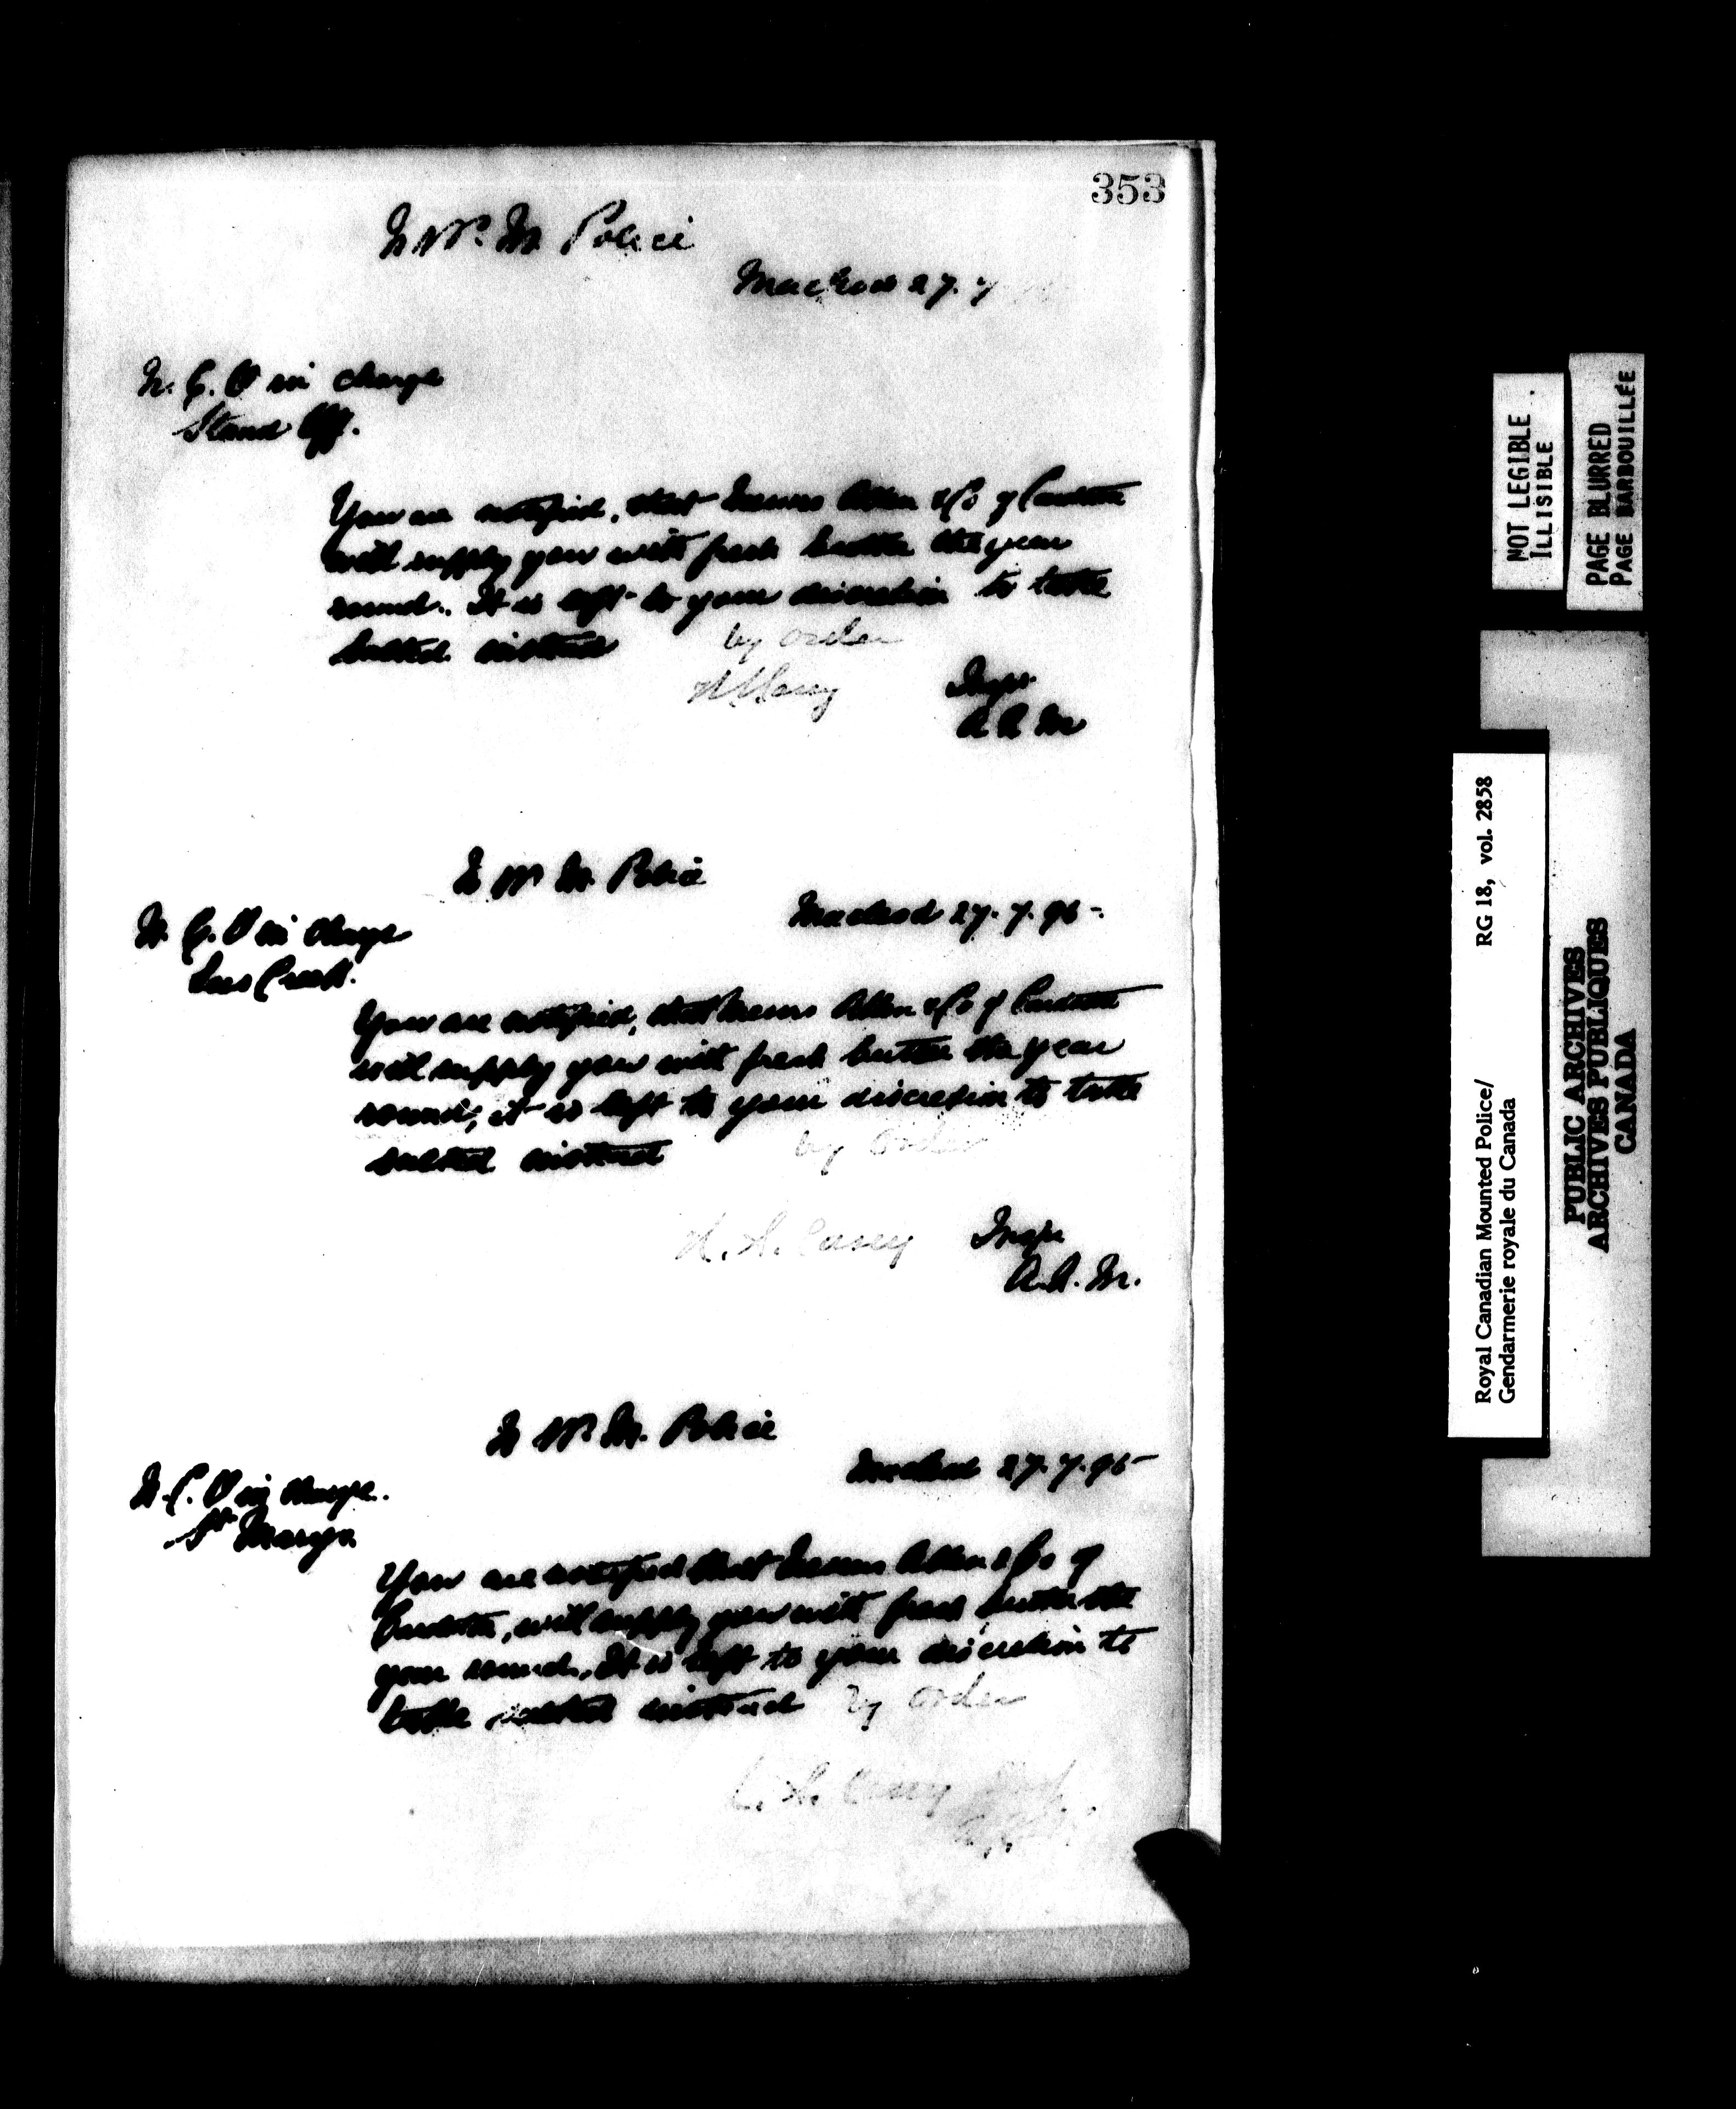 353
N. W. M. Police
Macleod 27. 7
N. C. O in charge
Stand Off.
You are notified, that Messrs Allen & Co of Cardston
will supply you with fresh butter the year
round. It is left to your discretion to take
salted instead by order
Casey Inspr
A A M
N W M. Police
Macleod 27. 7. 95.
N. C. O in charge
Lees Creek.
You are notified, that Messrs Allen & Co of Cardston
will supply you with fresh butter the year
round, it is left to your discretion to take
salted instead by order
Casey Inspr
A. A. M.
N W. M. Police
Macleod 27. 7. 95
N. C. O in charge.
St Marys.
You are notified that Messrs Allen & Co of
Cardston, will supply you with fresh butter the
year round. It is left to your discretion to
take salted instead by order
Casey
NOT LEGIBLE
ILLISIBLE
PAGE BLURRED
PAGE BARBOUILLÉE
RG 18, vol. 2858
Royal Canadian Mounted Police/
Gendarmerie royale du Canada
PUBLIC ARCHIVES
ARCHIVES PUBLIQUES
CANADA